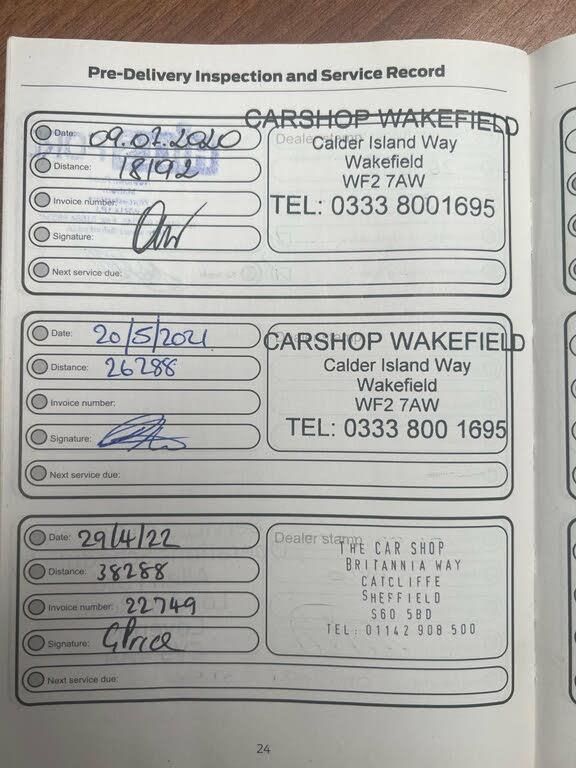 Pre-Delivery Inspection and Service Record
Date: 09.07.2020
Distance: 18192
Invoice number:
Signature:
Next service due:
Dealer stamp
CARSHOP WAKEFIELD
Calder Island Way
Wakefield
WF2 7AW
TEL: 0333 8001695
Date: 20/5/2021
Distance: 26288
Invoice number:
Signature:
Next service due:
Dealer stamp
CARSHOP WAKEFIELD
Calder Island Way
Wakefield
WF2 7AW
TEL: 0333 800 1695
Date: 29/4/22
Distance: 38288
Invoice number: 22749
Signature: GPrice
Next service due:
Dealer stamp
THE CAR SHOP
BRITANNIA WAY
CATCLIFFE
SHEFFIELD
S60 5BD
TEL: 01142 908 500
24